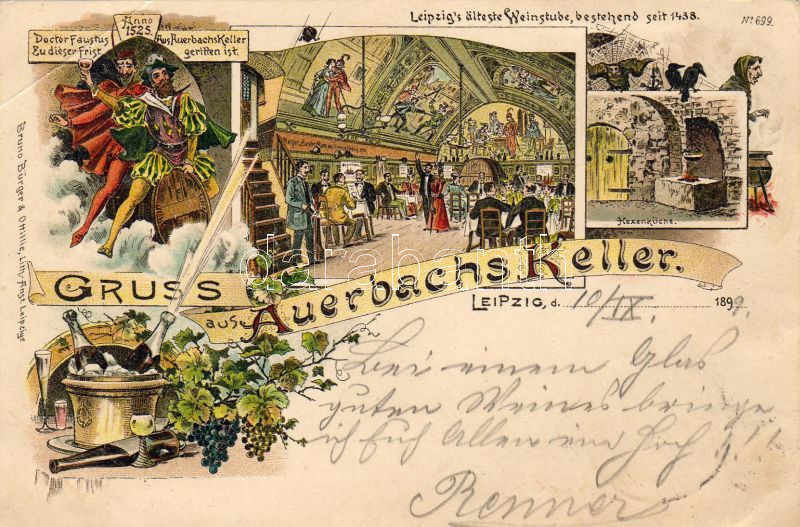 Leipzig's älteste Weinstube, bestehend seit 1438.
No 699.
Anno
1525.
Doctor Faustus
Zu dieser Frist
Aus Auerbachs Keller
geritten ist.
Hexenküche.
GRUSS
aus Auerbachs Keller.
LEIPZIG, d. 10/IX. 1899.
Bei einem Glas
guten Weines bringe
ich Euch Allen ein Hoch!!!
Renner
Bruno Bürger & Ottillie, Lith. Anst. Leipzig.
darabanth